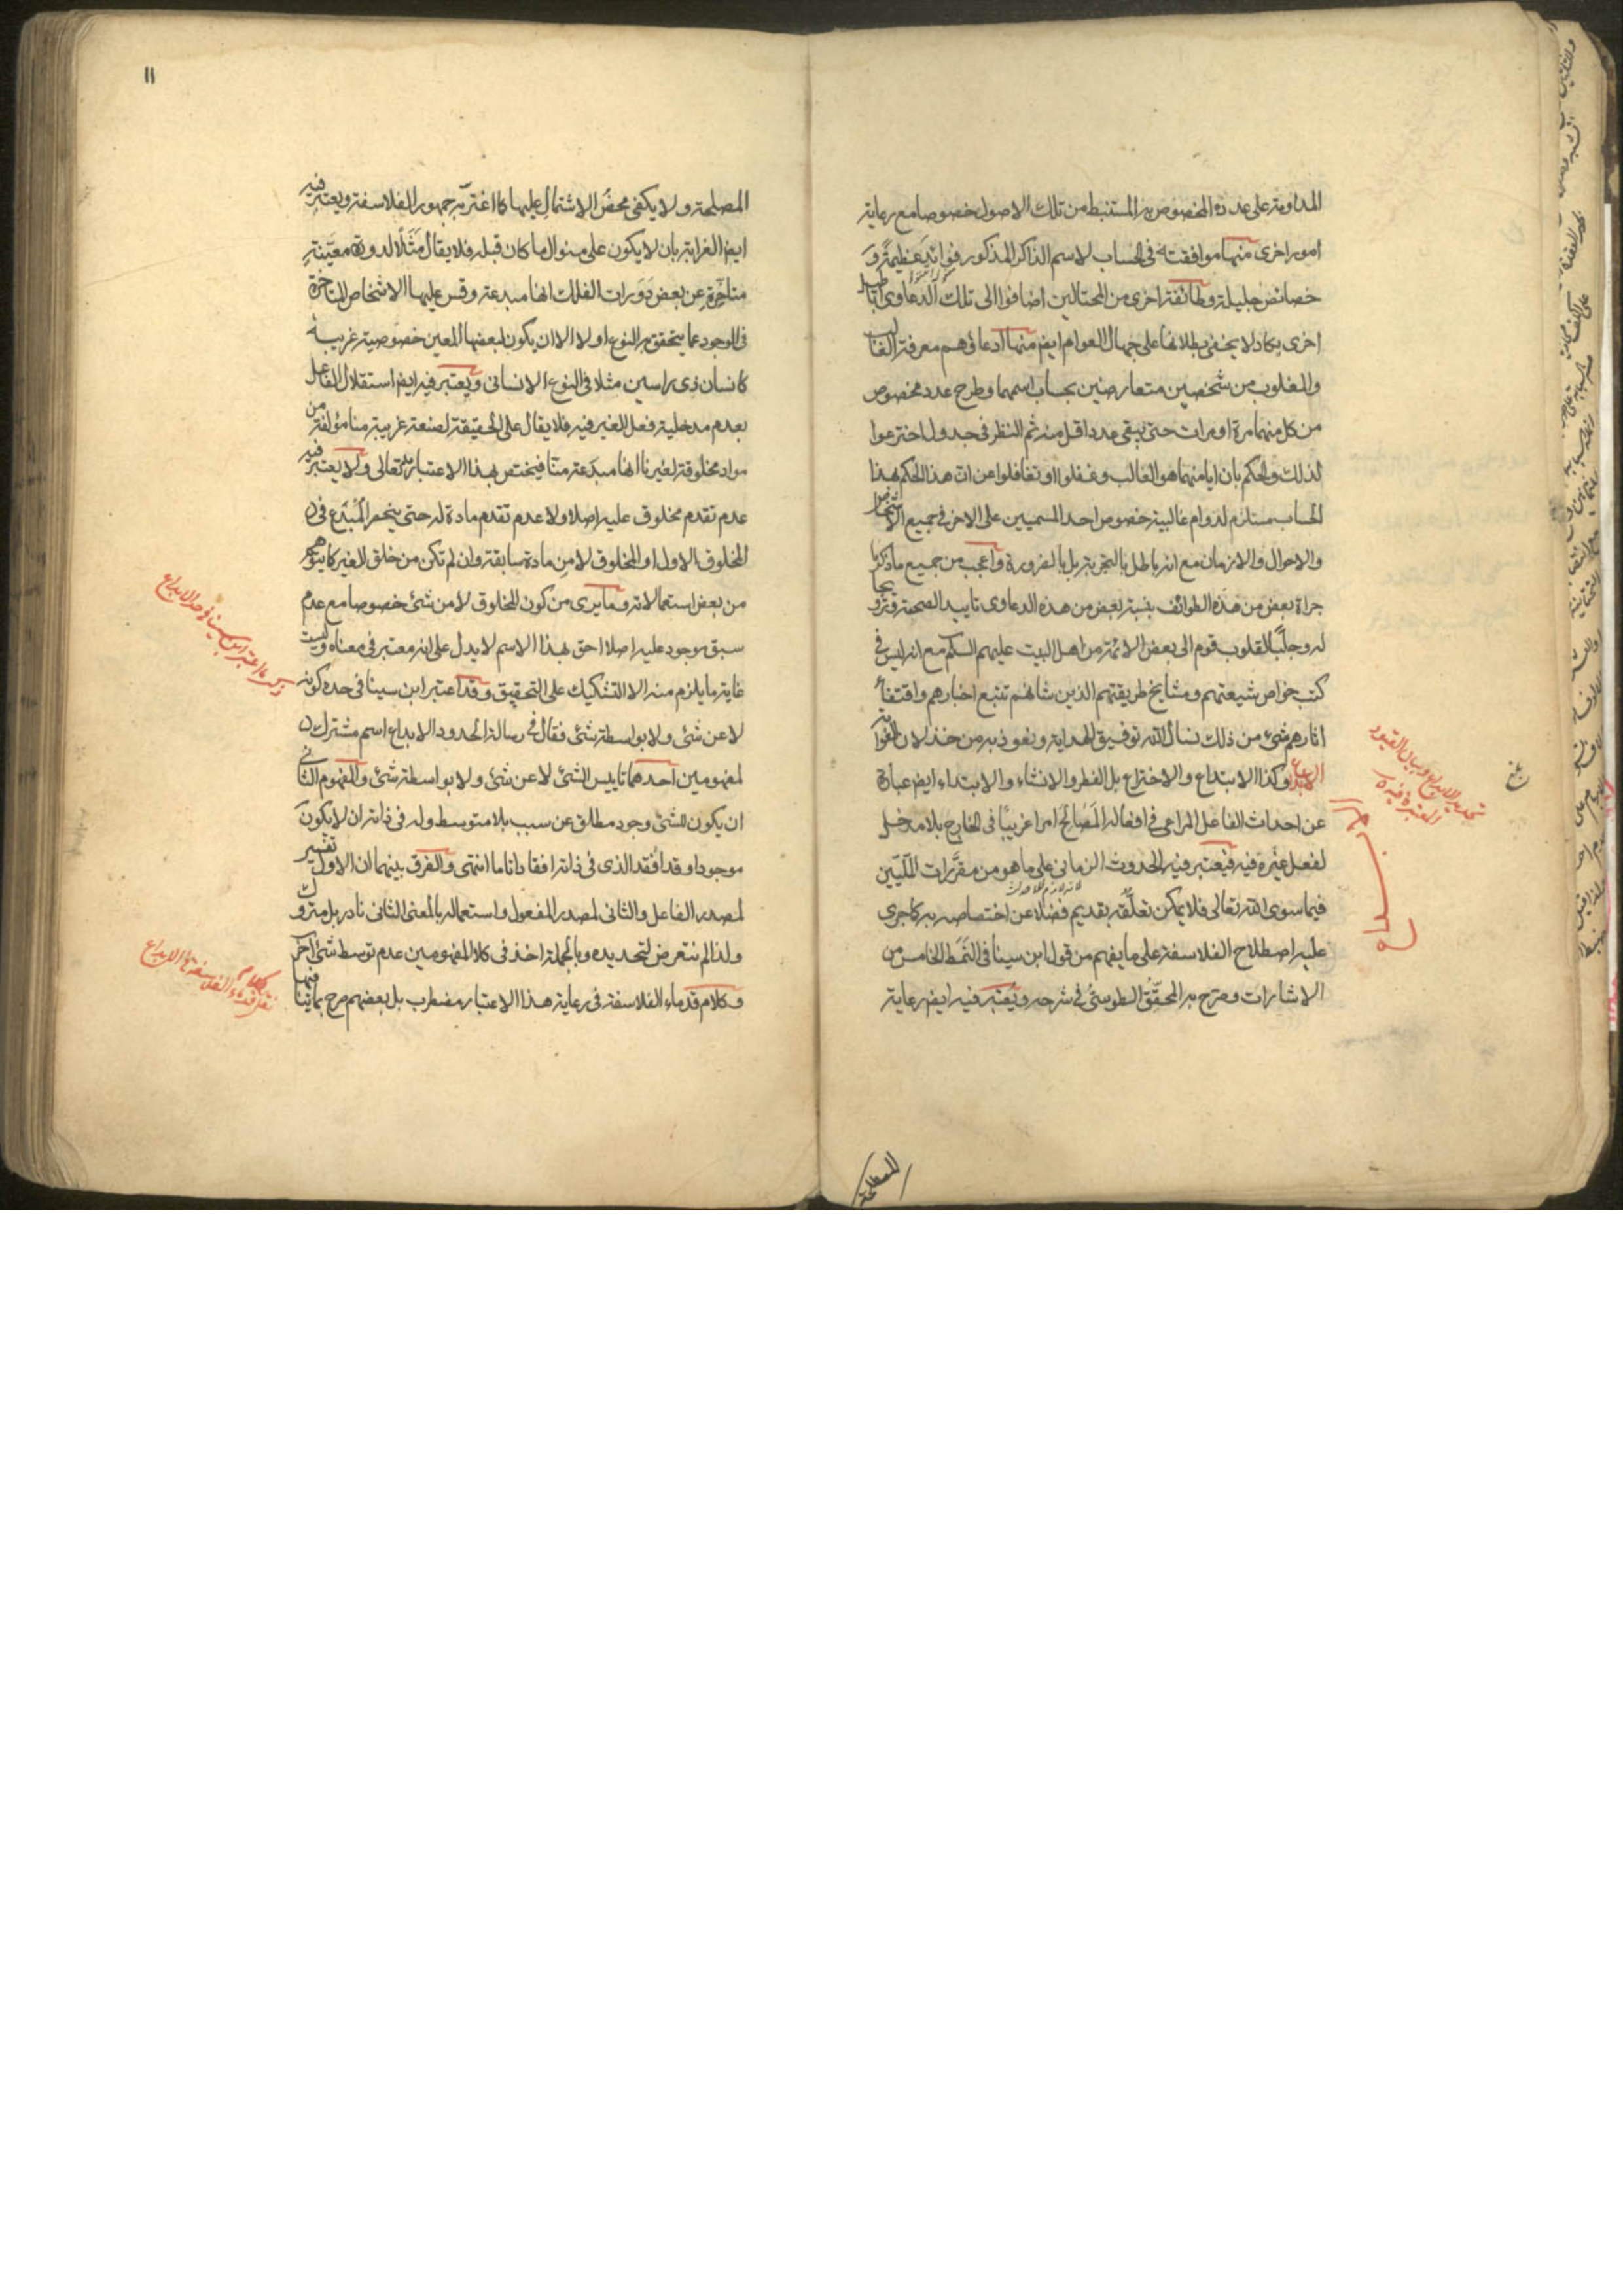 المداومة على عدده المخصوص به المستنبط من تلك الاصول خصوصا مع رعاية
امور اخرى منها موافقته في الحساب لاسم الذاكر المذكور فوائد عظيمة و
خصائص جليلة وطائفة اخرى من المحتالين اضافوا الى تلك الدعاوى اباطيل
اخرى يكاد لا يخفى بطلانها على جهال العوام ايض منها ادعاؤهم معرفة الغالب
والمغلوب من شخصين متعارضين بحساب اسمهما وطرح عدد مخصوص
من كل منهما مرة او مرات حتى يبقى عدد اقل منه ثم النظر في جدول اخترعوا
لذلك والحكم بان ايا منهما هو الغالب وغفلوا او تغافلوا عن ان هذا الحكم بهذا
الحساب مستلزم لدوام غالبية خصوص احد المسميين على الاخر في جميع الاشخاص
والاحوال والازمان مع انه باطل بالتجربة بل بالضرورة واعجب من جميع ما ذكر
جراة بعض من هذه الطوائف بنسبة بعض من هذه الدعاوى تاييد الصحته وترويجا
له وجلبًا لقلوب قوم الى بعض الائمة من اهل البيت عليهم السلم مع انه ليس في
كتب خواص شيعتهم ومشايخ طريقتهم الذين شانهم تتبع اخبارهم واقتفاء
اثارهم شئ من ذلك نسأل الله توفيق الهداية ونعوذ به من خذلان الغواية
الابداع وكذا الابتداع والاختراع بل الفطر والانشاء والابتداء ايض عبارة
عن احداث الفاعل المراعي في افعاله المصالح امرا غريبًا في الخارج بلا مدخل
لفعل غيره فيه فيعتبر فيه الحدوث الزماني على ما هو من مقررات المليين
فيما سوى الله تعالى فلا يمكن تعلقه بقديم فضلا عن اختصاصه به كما جرى
عليه اصطلاح الفلاسفة على ما يفهم من قول ابن سينا في النمط الخامس من
الاشارات وصرح به المحقق الطوسي في شرحه ويعتبر فيه ايض رعاية
تحديد الابداع وبيان القيود
المعتبرة فيه
بلغ
المصلحة
١١
المصلحة ولا يكفي محض الاشتمال عليها كما اغتر به جمهور الفلاسفة ويعتبر فيه
ايض الغرابة بان لا يكون على منوال ما كان قبله فلا يقال مثلًا لدورة معينة
متاخرة عن بعض دورات الفلك انها مبدعة وقس عليها الاشخاص المتاخرة
في الوجود عما يتحقق به النوع اولا الا ان يكون لبعضها المعين خصوصية غريبة
كانسان ذي راسين مثلا في النوع الانساني ويعتبر فيه ايض استقلال الفاعل
بعدم مدخلية فعل الغير فيه فلا يقال على الحقيقة لصنعة غريبة منا مؤلفة من
مواد مخلوقة لغيرنا انها مبدعة منا فيختص بهذا الاعتبار به تعالى ولا يعتبر فيه
عدم تقدم مخلوق عليه اصلا ولا عدم تقدم مادة له حتى ينحصر المبدع في
المخلوق الاول او المخلوق لا من مادة سابقة وان لم تكن من خلق الغير كما يتوهم
من بعض استعمالاته وما يرى من كون المخلوق لا من شئ خصوصا مع عدم
سبق موجود عليه اصلا احق بهذا الاسم لا يدل على انه معتبر في معناه وليست
غاية ما يلزم منه الا التشكيك على التحقيق وقد اعتبر ابن سينا في حده كونه
لا عن شئ ولا بواسطة شئ فقال في رسالة الحدود الابداع اسم مشترك
لمفهومين احدهما تاييس الشئ لا عن شئ ولا بواسطة شئ والمفهوم الثاني
ان يكون للشئ وجود مطلق عن سبب بلا متوسط وله في ذاته ان لا يكون
موجودا وقد افقد الذي في ذاته افقادا تاما انتهى والفرق بينهما ان الاول تفسير
لمصدر الفاعل والثاني لمصدر المفعول واستعماله بالمعنى الثاني نادر بل متروك
ولذا لم نتعرض لتحديده وبالجملة اخذ في كلا المفهومين عدم توسط شئ اخر
وكلام قدماء الفلاسفة في رعاية هذا الاعتبار مضطرب بل بعضهم صرح بما
ذكر ما اعتبر ابن سينا في حد الابداع
نقل كلام قدماء الفلاسفة في الابداع